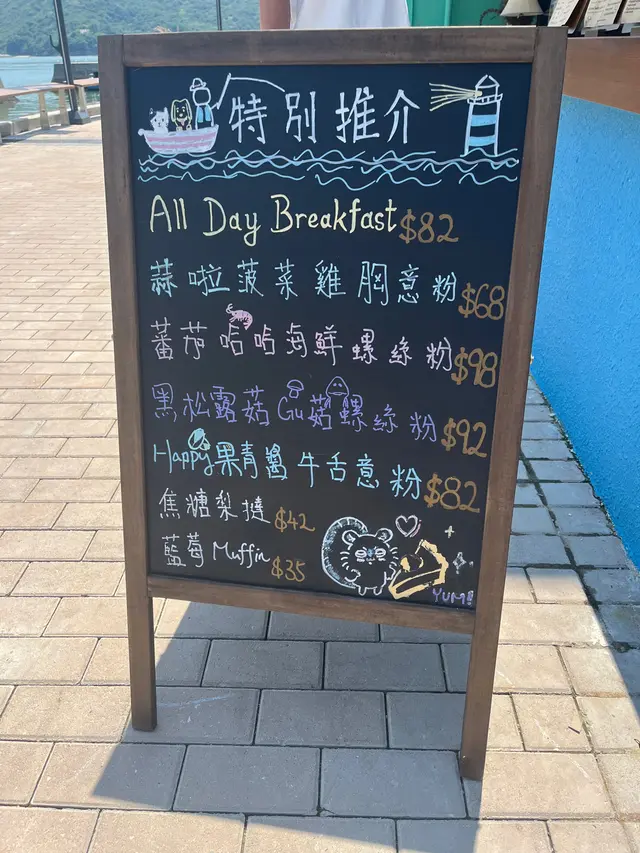 特別推介
All Day Breakfast $82
蒜啦菠菜雞胸意粉 $68
蕃茄咕咕海鮮螺絲粉 $98
黑松露菇Gu菇螺絲粉 $92
Happy果青醬牛舌意粉 $82
焦糖梨撻 $42
藍莓Muffin $35
YUM!